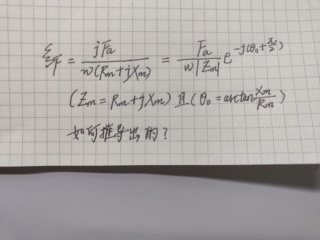 ξ_F = jFa / w(Rm+jXm) = Fa / w|Zm| e^{-j(θ₀+π/2)}
(Zm = Rm+jXm) 且 (θ₀ = arctan Xm/Rm)
如何推导出的?